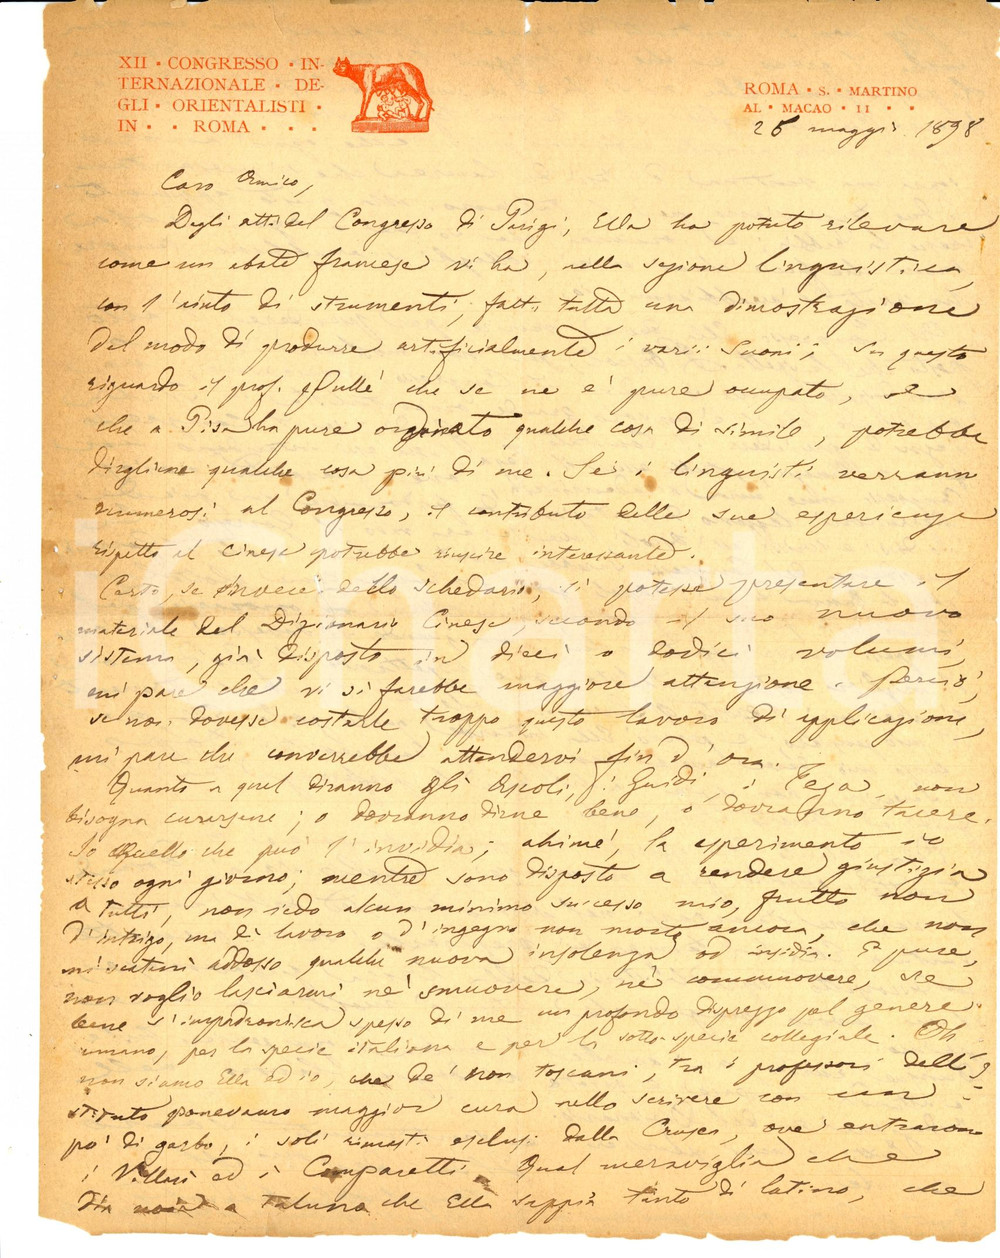 XII · CONGRESSO · IN-
TERNAZIONALE · DE-
GLI · ORIENTALISTI ·
IN · · ROMA · · ·
ROMA · S. MARTINO
AL · MACAO · 11 · ·
25 maggio 1898
Caro Amico,
Dagli atti del Congresso di Parigi, Ella ha potuto rilevare
come un abate francese vi ha, nella sezione linguistica,
con l'aiuto di strumenti, fatto tutta una dimostrazione
del modo di produrre artificialmente i varii suoni; su questo
riguardo il prof. che se ne è pure occupato, e
che a Pisa ha pure ordinato qualche cosa di simile, potrebbe
dirgliene qualche cosa più di me. Se i linguisti verranno
numerosi al Congresso, il contributo delle sue esperienze
rispetto al cinese potrebbe riuscire interessante.
Certo, se invece dello schedario, si potesse presentare il
materiale del Dizionario Cinese, secondo il suo nuovo
sistema, già disposto in dieci o dodici volumi,
mi pare che vi si farebbe maggiore attenzione. Perciò,
se non dovesse costarle troppo questo lavoro di applicazione,
mi pare che converrebbe attendervi fin d'ora.
Quanto a quel diranno gli Ascoli, i Guidi, i Teza, non
bisogna curarsene; o dovranno dirne bene, o dovranno tacere.
Io quello che può l'invidia, ahimè, la esperimento io
stesso ogni giorno; mentre sono disposto a rendere giustizia
a tutti, non vedo alcun minimo successo mio, frutto non
d'intrigo, ma di lavoro o d'ingegno non morto ancora, che non
mi scateni addosso qualche nuova insolenza od insidia. E pure,
non voglio lasciarmi nè smuovere, nè commuovere, se
bene s'impadronisca spesso di me un profondo disprezzo pel genere
umano, per la specie italiana e per la sotto-specie collegiale. Oh
non siamo Ella ed io, che de' non toscani, tra i professori dell'I-
stituto ponevamo maggior cura nello scrivere con un
po' di garbo, i soli rimasti esclusi dalla Crusca, ove entrarono
i Villari ed i Comparetti. Qual meraviglia che
dia noia a taluno che Ella sappia tanto di latino, che
iCharta